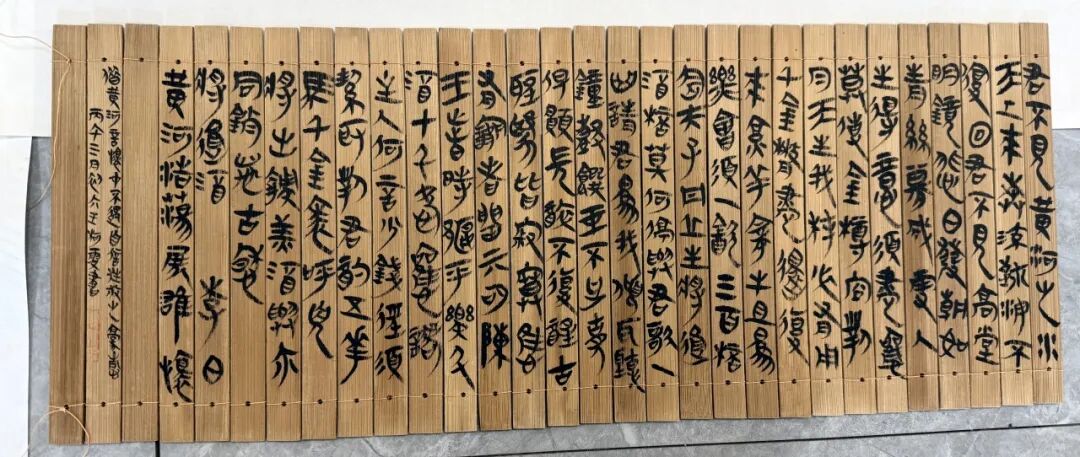 君不見黄河之水
天上來奔流到海不
復回君不見高堂
明鏡悲白髮朝如
青絲暮成雪人
生得意須盡歡
莫使金樽空對
月天生我材必有用
千金散盡還復
來烹羊宰牛且爲
樂會須一飲三百杯
岑夫子丹丘生將進
酒杯莫停與君歌一
曲請君爲我傾耳聽
鐘鼓饌玉不足貴
但願長醉不復醒古
聖賢皆寂寞惟
有飲者留其名陳
王昔時宴平樂斗
酒十千恣歡謔
主人何言少錢徑須
沽取對君酌五花
馬千金裘呼兒
將出換美酒與尔
同銷萬古愁
將進酒 李白
黄河浩蕩展誰懷
借黄河吾懷中不
丙午三月初六王書